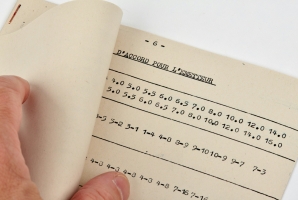 - 6 -
D'ACCORD POUR L'EMETTEUR
4.0 5.0 5.5 6.0 6.5 7.0 8.0 10.0 12.0 14.0
5.0 5.5 6.0 6.5 7.0 8.0 10.0 12.0 14.0 16.0
3-2 3-1 1-4 4-0 8-9 9-10 10-9 9-7 7-3
4-0 4-0 4-0 4-0 4-8 7-16 7-16